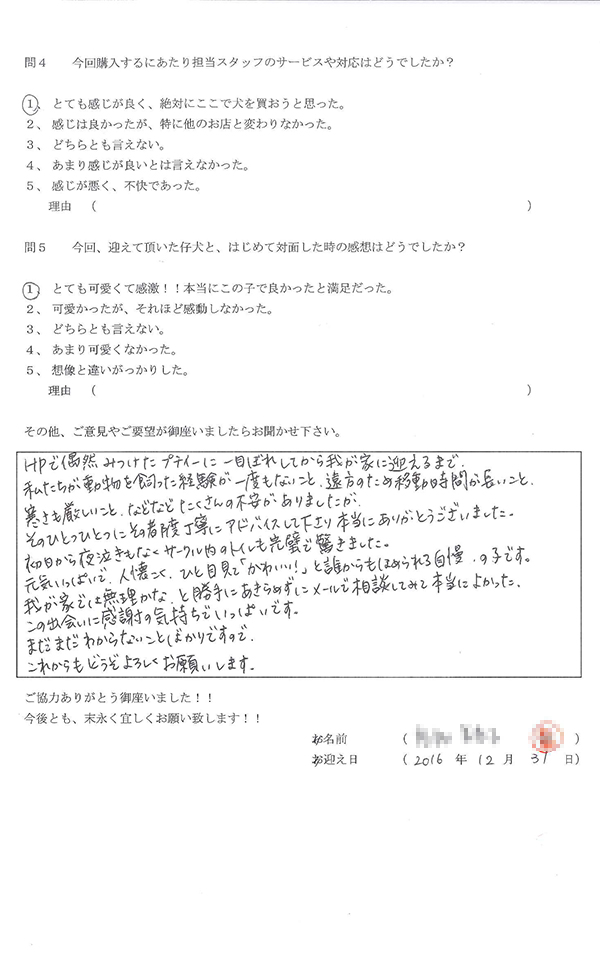 問4　今回購入するにあたり担当スタッフのサービスや対応はどうでしたか？
1、とても感じが良く、絶対にここで犬を買おうと思った。
2、感じは良かったが、特に他のお店と変わりなかった。
3、どちらとも言えない。
4、あまり感じが良いとは言えなかった。
5、感じが悪く、不快であった。
理由　（　　　）
問5　今回、迎えて頂いた仔犬と、はじめて対面した時の感想はどうでしたか？
1、とても可愛くて感激！！本当にこの子で良かったと満足だった。
2、可愛かったが、それほど感動しなかった。
3、どちらとも言えない。
4、あまり可愛くなかった。
5、想像と違いがっかりした。
理由　（　　　）
その他、ご意見やご要望が御座いましたらお聞かせ下さい。
HPで偶然みつけたプティーに一目ぼれしてから我が家に迎えるまで、
私たちが動物を飼った経験が一度もないこと、遠方のため移動時間が長いこと、
寒さも厳しいこと、などなどたくさんの不安がありましたが、
そのひとつひとつにその都度丁寧にアドバイスして下さり本当にありがとうございました。
初日から夜泣きもなくサークル内のトイレも完璧で驚きました。
元気いっぱいで、人懐こく、ひと目見て「かわいい！」と誰からもほめられる自慢の子です。
我が家では無理かな、と勝手にあきらめずにメールで相談してみて本当によかった、
この出会いに感謝の気持ちでいっぱいです。
まだまだわからないことばかりですので、
これからもどうぞよろしくお願いします。
ご協力ありがとう御座いました！！
今後とも、末永く宜しくお願い致します！！
お名前　（　　　）
お迎え日　（2016 年 12 月 31 日）